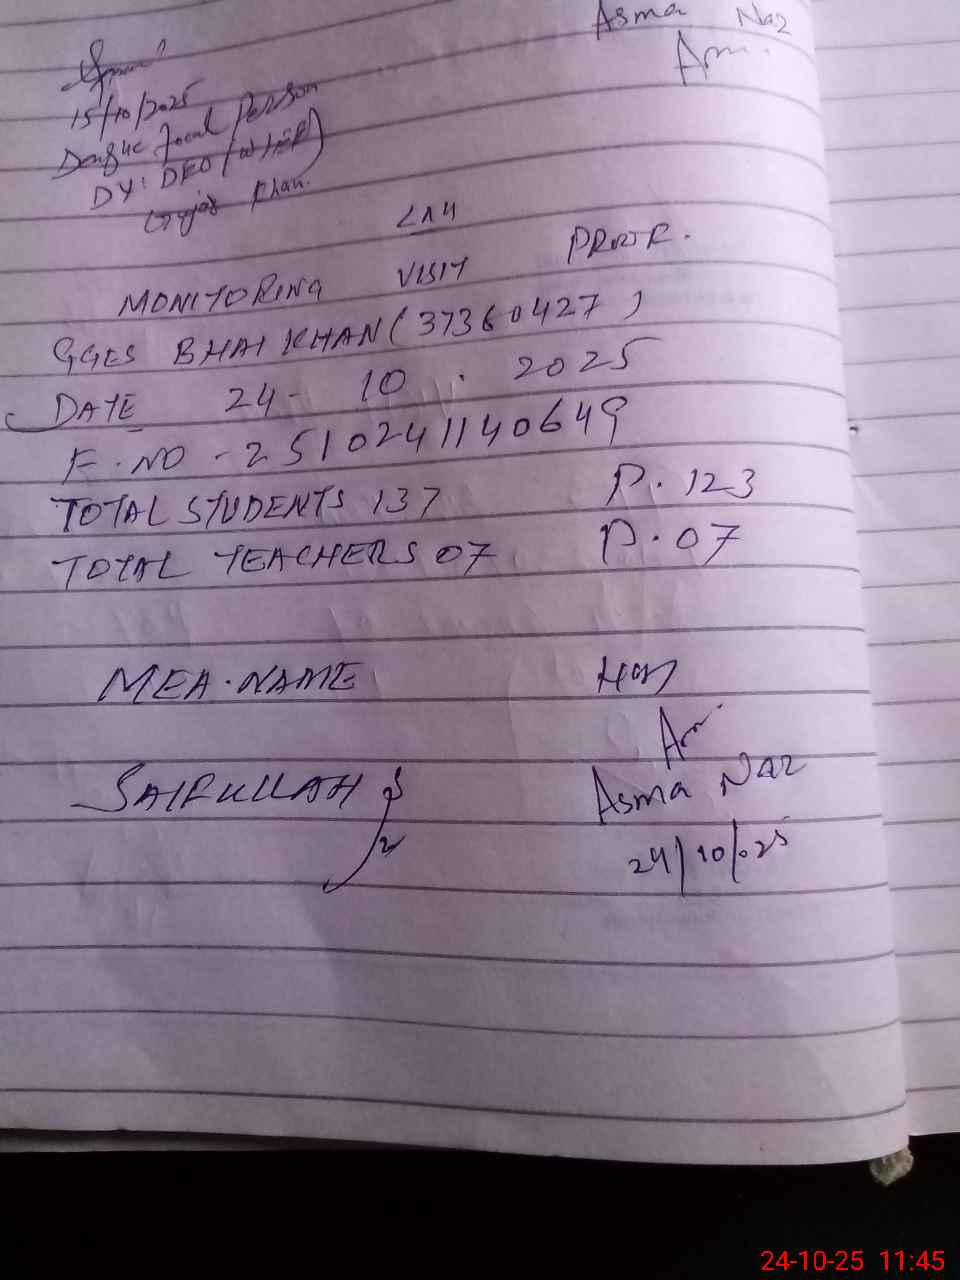 Asma Naz
15/10/2025
Dengue Focal Person
DY: DEO (W-EE)
Gujar Khan.
MONITORING VISIT
GGES BHAI KHAN (37360427)
DATE 24-10.2025
F.NO - 2510241140649
TOTAL STUDENTS 137 P. 123
TOTAL TEACHERS 07 P. 07
MEA.NAME
SAIFULLAH
Asma Naz
24/10/.25
24-10-25 11:45